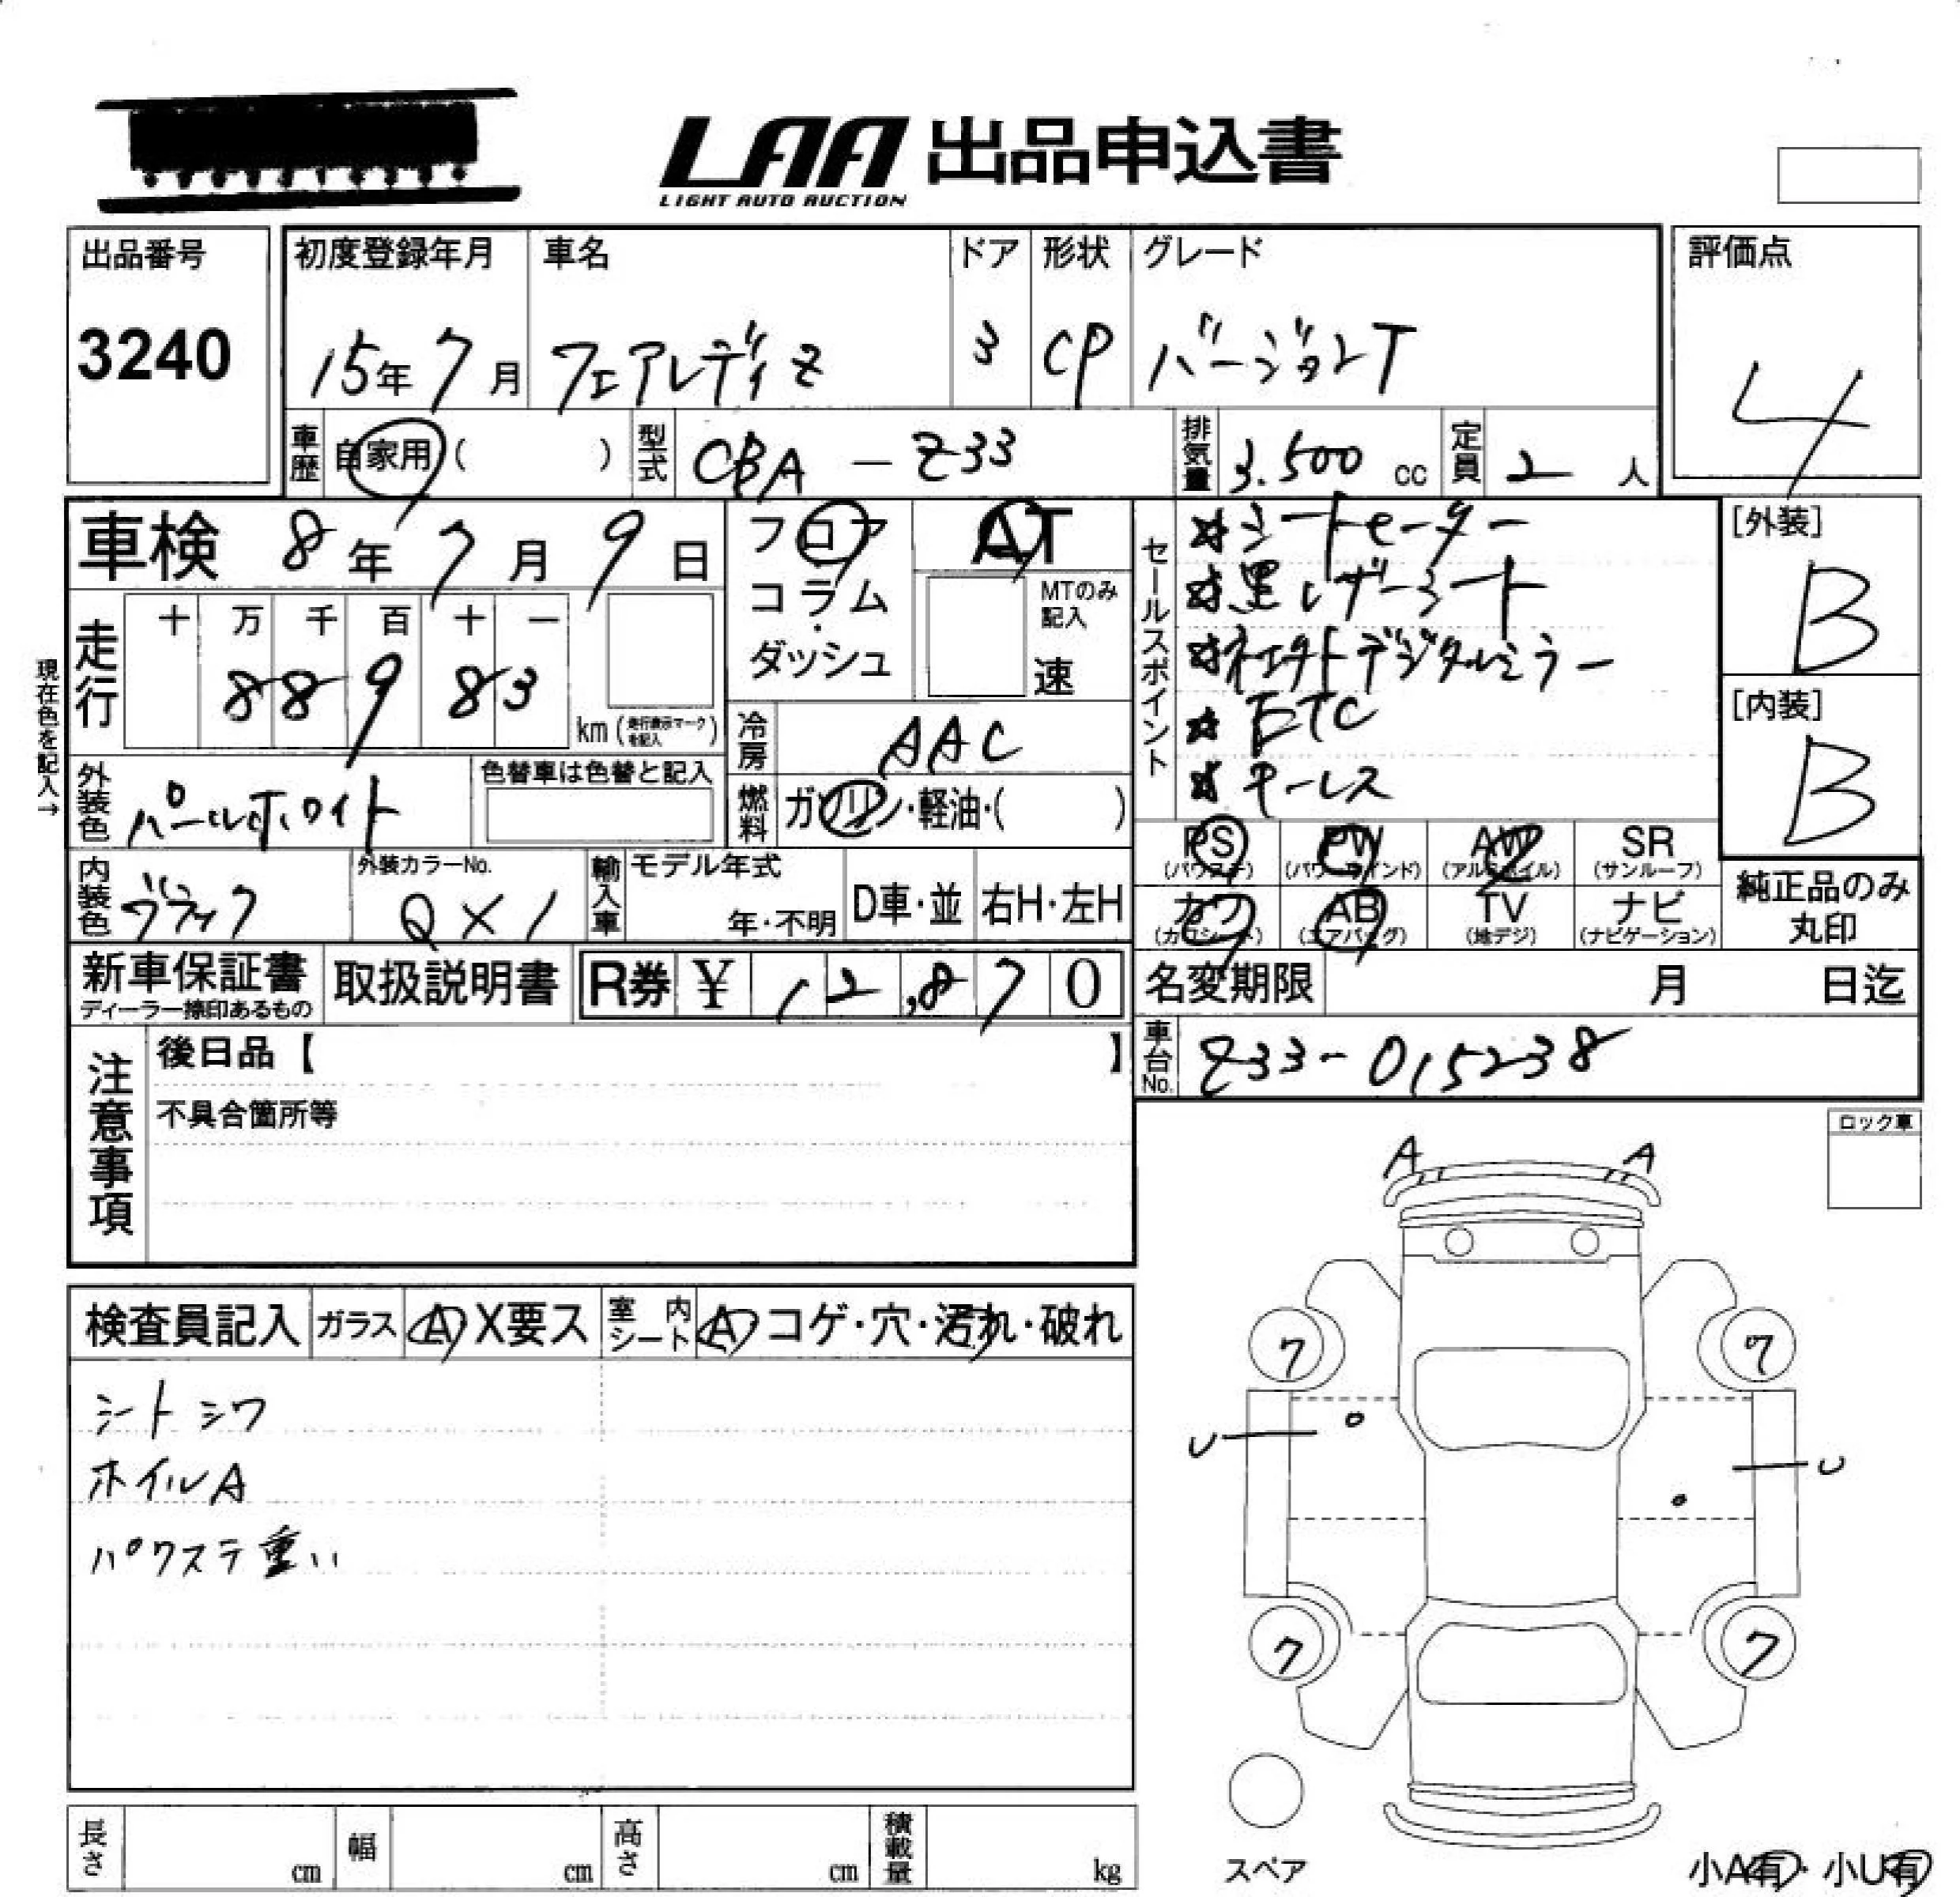 LAA 出品申込書
LIGHT AUTO AUCTION
出品番号
3240
初度登録年月
15年7月
車名
フェアレディZ
ドア
3
形状
CP
グレード
バージョンT
評価点
4
車歴 自家用 ( )
型式 CBA - Z33
排気量 3.500 cc
定員 2 人
車検 8年7月9日
フロア
コラム
ダッシュ
AT
MTのみ
記入
速
セールスポイント
シートヒーター
黒レザーシート
デジタルミラー
ETC
キーレス
[外装]
B
[内装]
B
現在色を記入→
走行
十 万 千 百 十 一
8 8 9 8 3
km (走行表示マークを記入)
冷房 AAC
燃料 ガソリン・軽油・( )
外装色 パールホワイト
色替車は色替と記入
内装色 ブラック
外装カラーNo.
QX1
輸入車 モデル年式
年・不明
D車・並
右H・左H
PS
(パワステ)
PW
(パワーウインド)
AW
(アルミホイル)
SR
(サンルーフ)
カワ
(カワシート)
AB
(エアバッグ)
TV
(地デジ)
ナビ
(ナビゲーション)
純正品のみ
丸印
新車保証書
ディーラー捺印あるもの
取扱説明書
R券 ¥ 12,870
名変期限 月 日迄
車台No. Z33-015238
注意事項
後日品【 】
不具合箇所等
ロック車
検査員記入
ガラス A X要ス
室内シート A コゲ・穴・汚れ・破れ
シートシワ
ホイルA
パワステ重い
A A
7 7
U U
7 7
スペア
小A有・小U有
長さ cm
幅 cm
高さ cm
積載量 kg